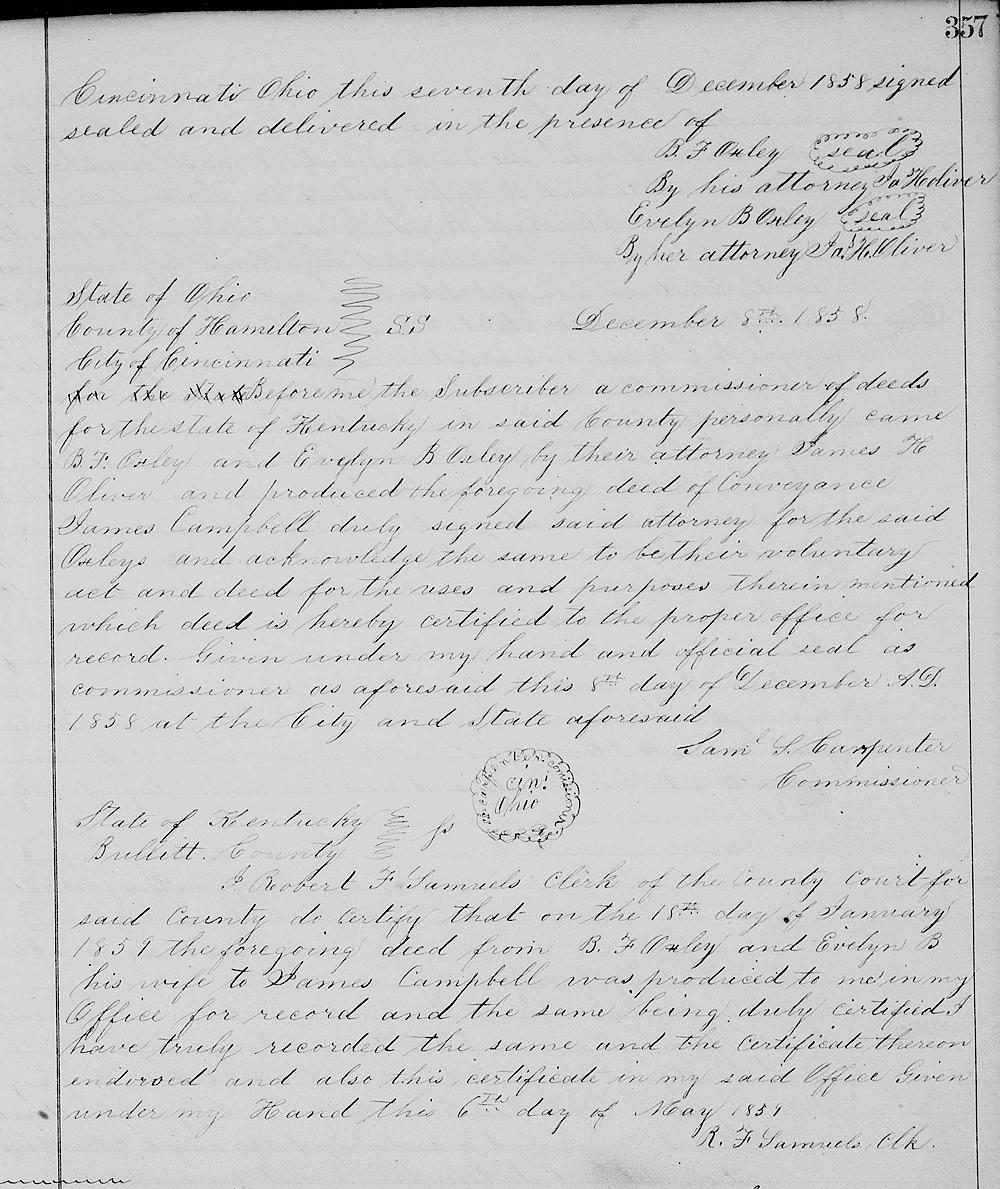 357
Cincinnati Ohio this seventh day of December 1858 signed
sealed and delivered in the presence of
B. F Oxley seal
By his attorney Jas H Oliver
Evelyn B Oxley seal
By her attorney Jas. H. Oliver
State of Ohio
County of Hamelton S.S December 8th 1858.
City of Cincinnati
for the State Before me the Subscriber a commissioner of deeds
for the state of Kentucky in said County personally came
B. F. Oxley and Evelyn B Oxley by their attorney James H
Oliver and produced the foregoing deed of Conveyance
James Campbell duly signed said attorney for the said
Oxleys and acknowledge the same to be their voluntary
act and deed for the uses and purposes therein mentioned
which deed is hereby certified to the proper office for
record. Given under my hand and official seal as
commissioner as aforesaid this 8th day of December A.D.
1858 at the City and State aforesaid
Saml S. Carpenter
Commissioner
carpenter commissioner
Cin!
Ohio
State of Kentucky
Bullitt. County
I Robert F Samuels Clerk of the County Court for
said County do Certify that on the 18th day of January
1859 the foregoing deed from B. F Oxley and Evelyn B
his wife to James Campbell was produced to me in my
Office for record and the same being duly certified I
have truly recorded the same and the Certificate thereon
endorsed and also this certificate in my said Office Given
under my Hand this 6th day of May 1859
R. F Samuels Clk.